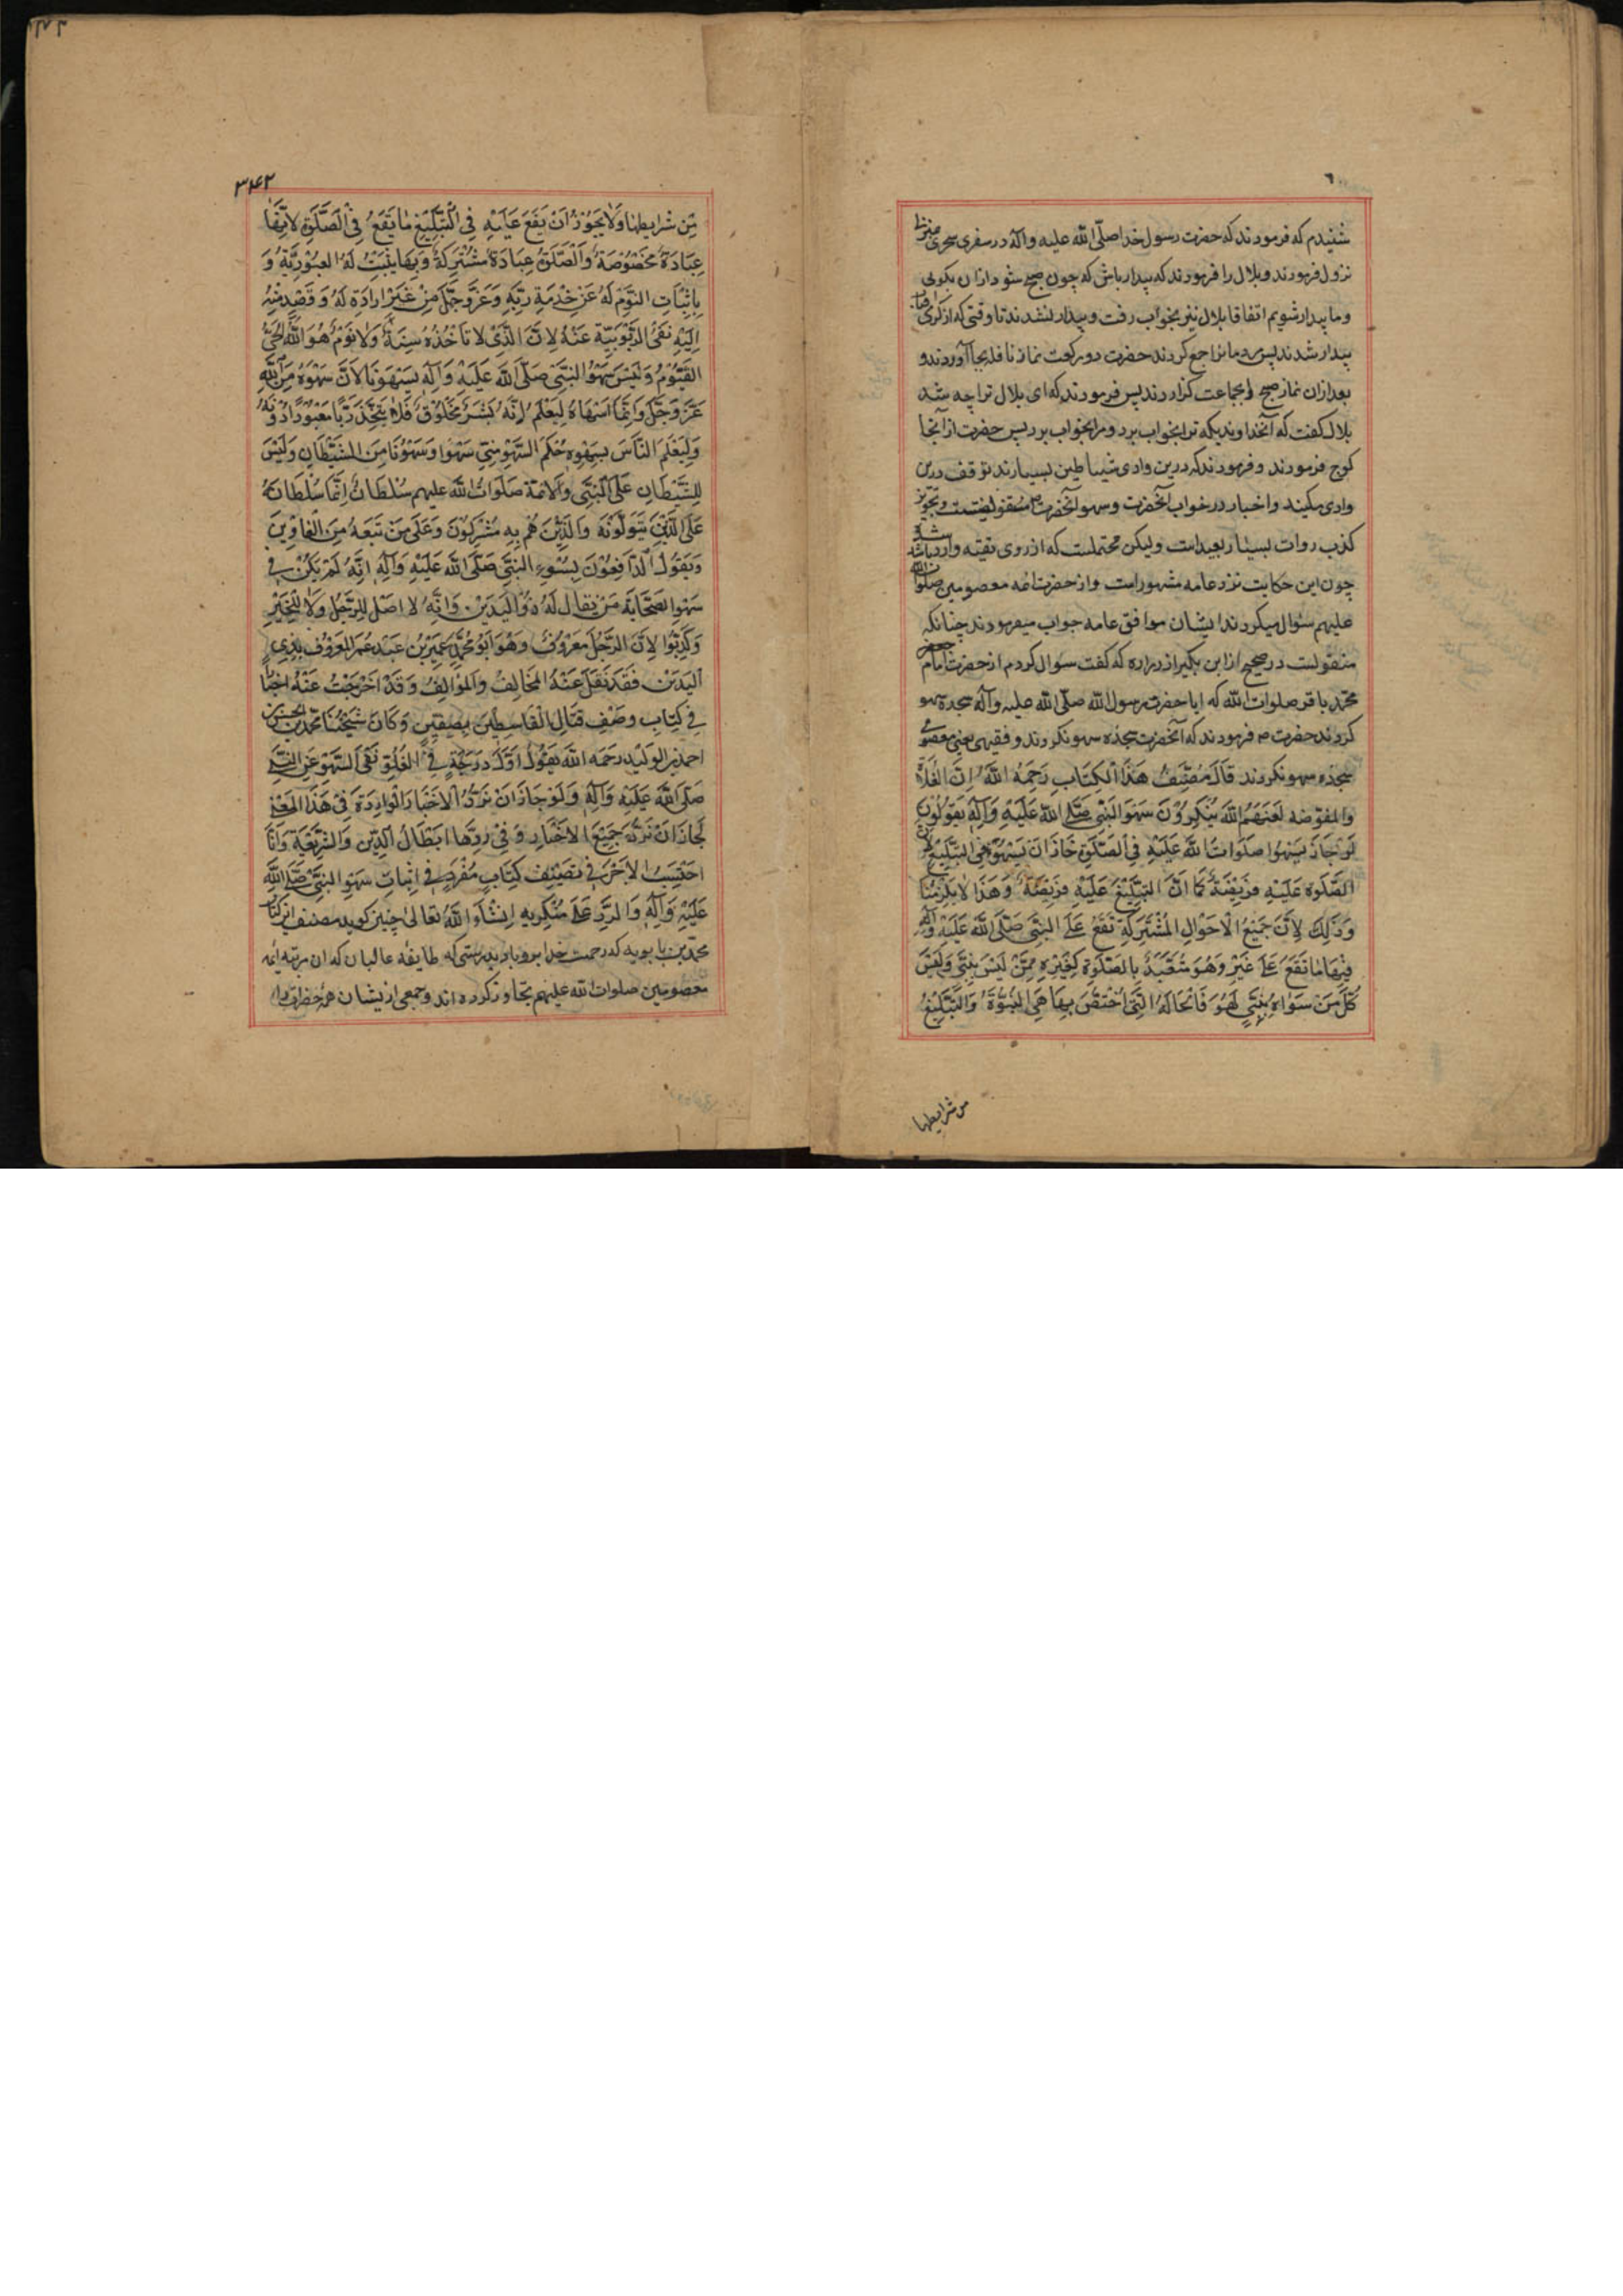 شنیدم که فرمودند که حضرت رسول خدا صلّی الله علیه وآله در سفری سحری منزل
نزول فرمودند و بلال را فرمودند که بیدار باش که چون صبح شود اذان بگوئی
وما بیدار شویم اتفاقا بلال نیز بخواب رفت و بیدار نشدند تا وقتی که از کرمی
بیدار شدند پس دمانرا جمع کردند حضرت دو رکعت نماز نافله بجا آوردند و
بعد ازان نماز صبح را بجماعت کزاردند پس فرمودند که ای بلال ترا چه شد
بلال کفت که آنخداوندیکه ترا بخواب برد و مرا بخواب برد پس حضرت از آنجا
کوچ فرمودند و فرمودند که درین وادی شیاطین بسیارند توقف درین
وادی مکنید واخبار در خواب آنحضرت وسهو آنحضرت ص متفق نیست و تجویز
کذب روات بسیار بعید است ولیکن محتملست که از روی تقیه وارد شده باشد
چون این حکایت نزد عامه مشهور است واز حضرت ائمه معصومین صلوات الله
علیهم سئوال میکردند ایشان موافق عامه جواب میفرمودند چنانکه
منقولست در صحیح از ابن بکیر از زراره که کفت سئوال کردم از حضرت امام
محمد باقر صلوات الله که ایا حضرت رسول الله صلّی الله علیه وآله سجده سهو
کردند حضرت فرمودند که آنحضرت سجده سهو نکردند و فقیهی یعنی معصومی
سجده سهو نکردند قَالَ مُصَنِّفُ هَذَا الْكِتَابِ رَحِمَهُ اللَّهُ إِنَّ الْغُلَاةَ
والمفوّضه لَعَنَهُمُ اللَّهُ يُنْكِرُوْنَ سَهْوَ النَّبِيِّ صَلَّى اللَّهُ عَلَيْهِ وَآلِهِ يَقُوْلُوْنَ
لَوْ جَازَ يَسْهُوا صَلَوَاتُ اللَّهِ عَلَيْهِ فِي الصَّلَوةِ جَازَ اَنْ يَسْهُوَ فِي التَّبْلِيْغِ لِاَنَّ
الصَّلَوة عَلَيْهِ فَرِيْضَةٌ كَمَا اَنَّ التَّبْلِيْغَ عَلَيْهِ فَرِيْضَةٌ وَهَذَا لَا يَلْزَمُنَا
وَذَلِكَ لِاَنَّ جَمِيْعَ الْاَحْوَالِ الْمُشْتَرِكَةِ تَقَعُ عَلَى النَّبِيِّ صَلَّى اللَّهُ عَلَيْهِ وَآلِهِ
فِيْهَا مَا تَقَعُ عَلَى غَيْرِهِ وَهُوَ مُتَعَبِّدٌ بِالصَّلَوةِ كَغَيْرِهِ مِمَّنْ لَيْسَ بِنَبِيٍّ وَلَيْسَ
كُلُّ مَنْ سَوَاهُ بِنَبِيٍّ لَهُوَ فَالْحَالَةُ الَّتِي اُخْتُصَّ بِهَا هِيَ النُّبُوَّةُ وَالتَّبْلِيْغُ
من شرایطها
۳۴۲
مِنْ شَرَايِطِهَا وَلَا يَجُوْزُ اَنْ يَقَعَ عَلَيْهِ فِي التَّبْلِيْغِ مَا يَقَعُ فِي الصَّلَوةِ لِاَنَّهَا
عِبَادَةٌ مَخْصُوْصَةٌ وَالصَّلَوةُ عِبَادَةٌ مُشْتَرِكَةٌ وَبِهَا يَثْبُتُ لَهُ الْعُبُوْدِيَّةُ وَ
بِاِثْبَاتِ النَّوْمِ لَهُ عَنْ خِدْمَةِ رَبِّهِ وَعَزَّ وَجَلَّ مِنْ غَيْرِ اِرَادَةٍ لَهُ وَقَصْدٍ مِنْهُ
اِلَيْهِ نَفْيُ الرُّبُوْبِيَّةِ عَنْهُ لِاَنَّ الَّذِيْ لَا تَاْخُذُهُ سِنَةٌ وَلَا نَوْمٌ هُوَ اللَّهُ الْحَيُّ
الْقَيُّوْمُ وَلَيْسَ سَهْوُ النَّبِيِّ صَلَّى اللَّهُ عَلَيْهِ وَآلِهِ كَسَهْوِنَا لِاَنَّ سَهْوَهُ مِنَ اللَّهِ
عَزَّ وَجَلَّ وَاِنَّمَا اَسْهَاهُ لِيُعْلَمَ اِنَّهُ بَشَرٌ مَخْلُوْقٌ فَلَا يُتَّخَذَ رَبًّا مَعْبُوْدًا دُوْنَهُ
وَلِيَعْلَمَ النَّاسُ بِسَهْوِهِ حُكْمَ السَّهْوِ مَتَى سَهَوْا وَسَهْوُنَا مِنَ الشَّيْطَانِ وَلَيْسَ
لِلشَّيْطَانِ عَلَى النَّبِيِّ وَالْاَئِمَّةِ صَلَوَاتُ اللَّهِ عليهم سُلْطَانٌ اِنَّمَا سُلْطَانُهُ
عَلَى الَّذِيْنَ يَتَوَلَّوْنَهُ وَالَّذِيْنَ هُمْ بِهِ مُشْرِكُوْنَ وَعَلَى مَنْ تَبَعَهُ مِنَ الْغَاوِيْنَ
وَيَقُوْلُ الدَّافِعُوْنَ لِسَهْوِ النَّبِيِّ صَلَّى اللَّهُ عَلَيْهِ وَآلِهِ اِنَّهُ لَمْ يَكُنْ فِي
الصَّحَابَةِ مَنْ يُقَالُ لَهُ ذُوالْيَدَيْنِ وَاِنَّهُ لَا اَصْلَ لِلرَّجُلِ وَلَا لِلْخَبَرِ
وَكَذَبُوْا لِاَنَّ الرَّجُلَ مَعْرُوْفٌ وَهُوَ اَبُوْ مُحَمَّدٍ عُمَيْرُ بْنُ عَبْدِ عُمَرَ الْمَعْرُوْفُ بِذِي
الْيَدَيْنِ فَقَدْ نَقَلَ عَنْهُ الْمُخَالِفُ وَالْمُؤَالِفُ وَقَدْ اَخْرَجْتُ عَنْهُ اَخْبَارًا
فِي كِتَابِ وَصْفِ قِتَالِ الْقَاسِطِيْنَ بِصِفِّيْنَ وَكَانَ شَيْخُنَا مُحَمَّدُ بْنُ الْحَسَنِ بْنِ
احمد بن الوليد رحمه الله يَقُوْلُ اَوَّلُ دَرَجَةٍ فِي الْغُلُوِّ نَفْيُ السَّهْوِ عَنِ النَّبِيِّ
صَلَّى اللَّهُ عَلَيْهِ وَآلِهِ وَلَوْ جَازَ اَنْ تُرَدَّ الْاَخْبَارُ الْوَارِدَةُ فِي هَذَا الْمَعْنَى
لَجَازَ اَنْ نَرُدَّ جَمِيْعَ الْاَخْبَارِ وَفِي رَدِّهَا اِبْطَالُ الدِّيْنِ وَالشَّرِيْعَةِ وَاَنَا
اَحْتَسِبُ الْاَجْرَ فِي تَصْنِيْفِ كِتَابٍ مُفْرَدٍ فِي اِثْبَاتِ سَهْوِ النَّبِيِّ صَلَّى اللَّهُ
عَلَيْهِ وَآلِهِ وَالرَّدِّ عَلَى مُنْكِرِيهِ اِنْشَاءَ اللَّهُ تَعَالَى چنین کوید مصنف این کتاب
محمد بن بابویه که رحمت خدا برو باد بدرستی که طایفه غالیان که ان مرتبه ائمه
معصومین صلوات الله علیهم تجاوز کرده اند و جمعی از یشان